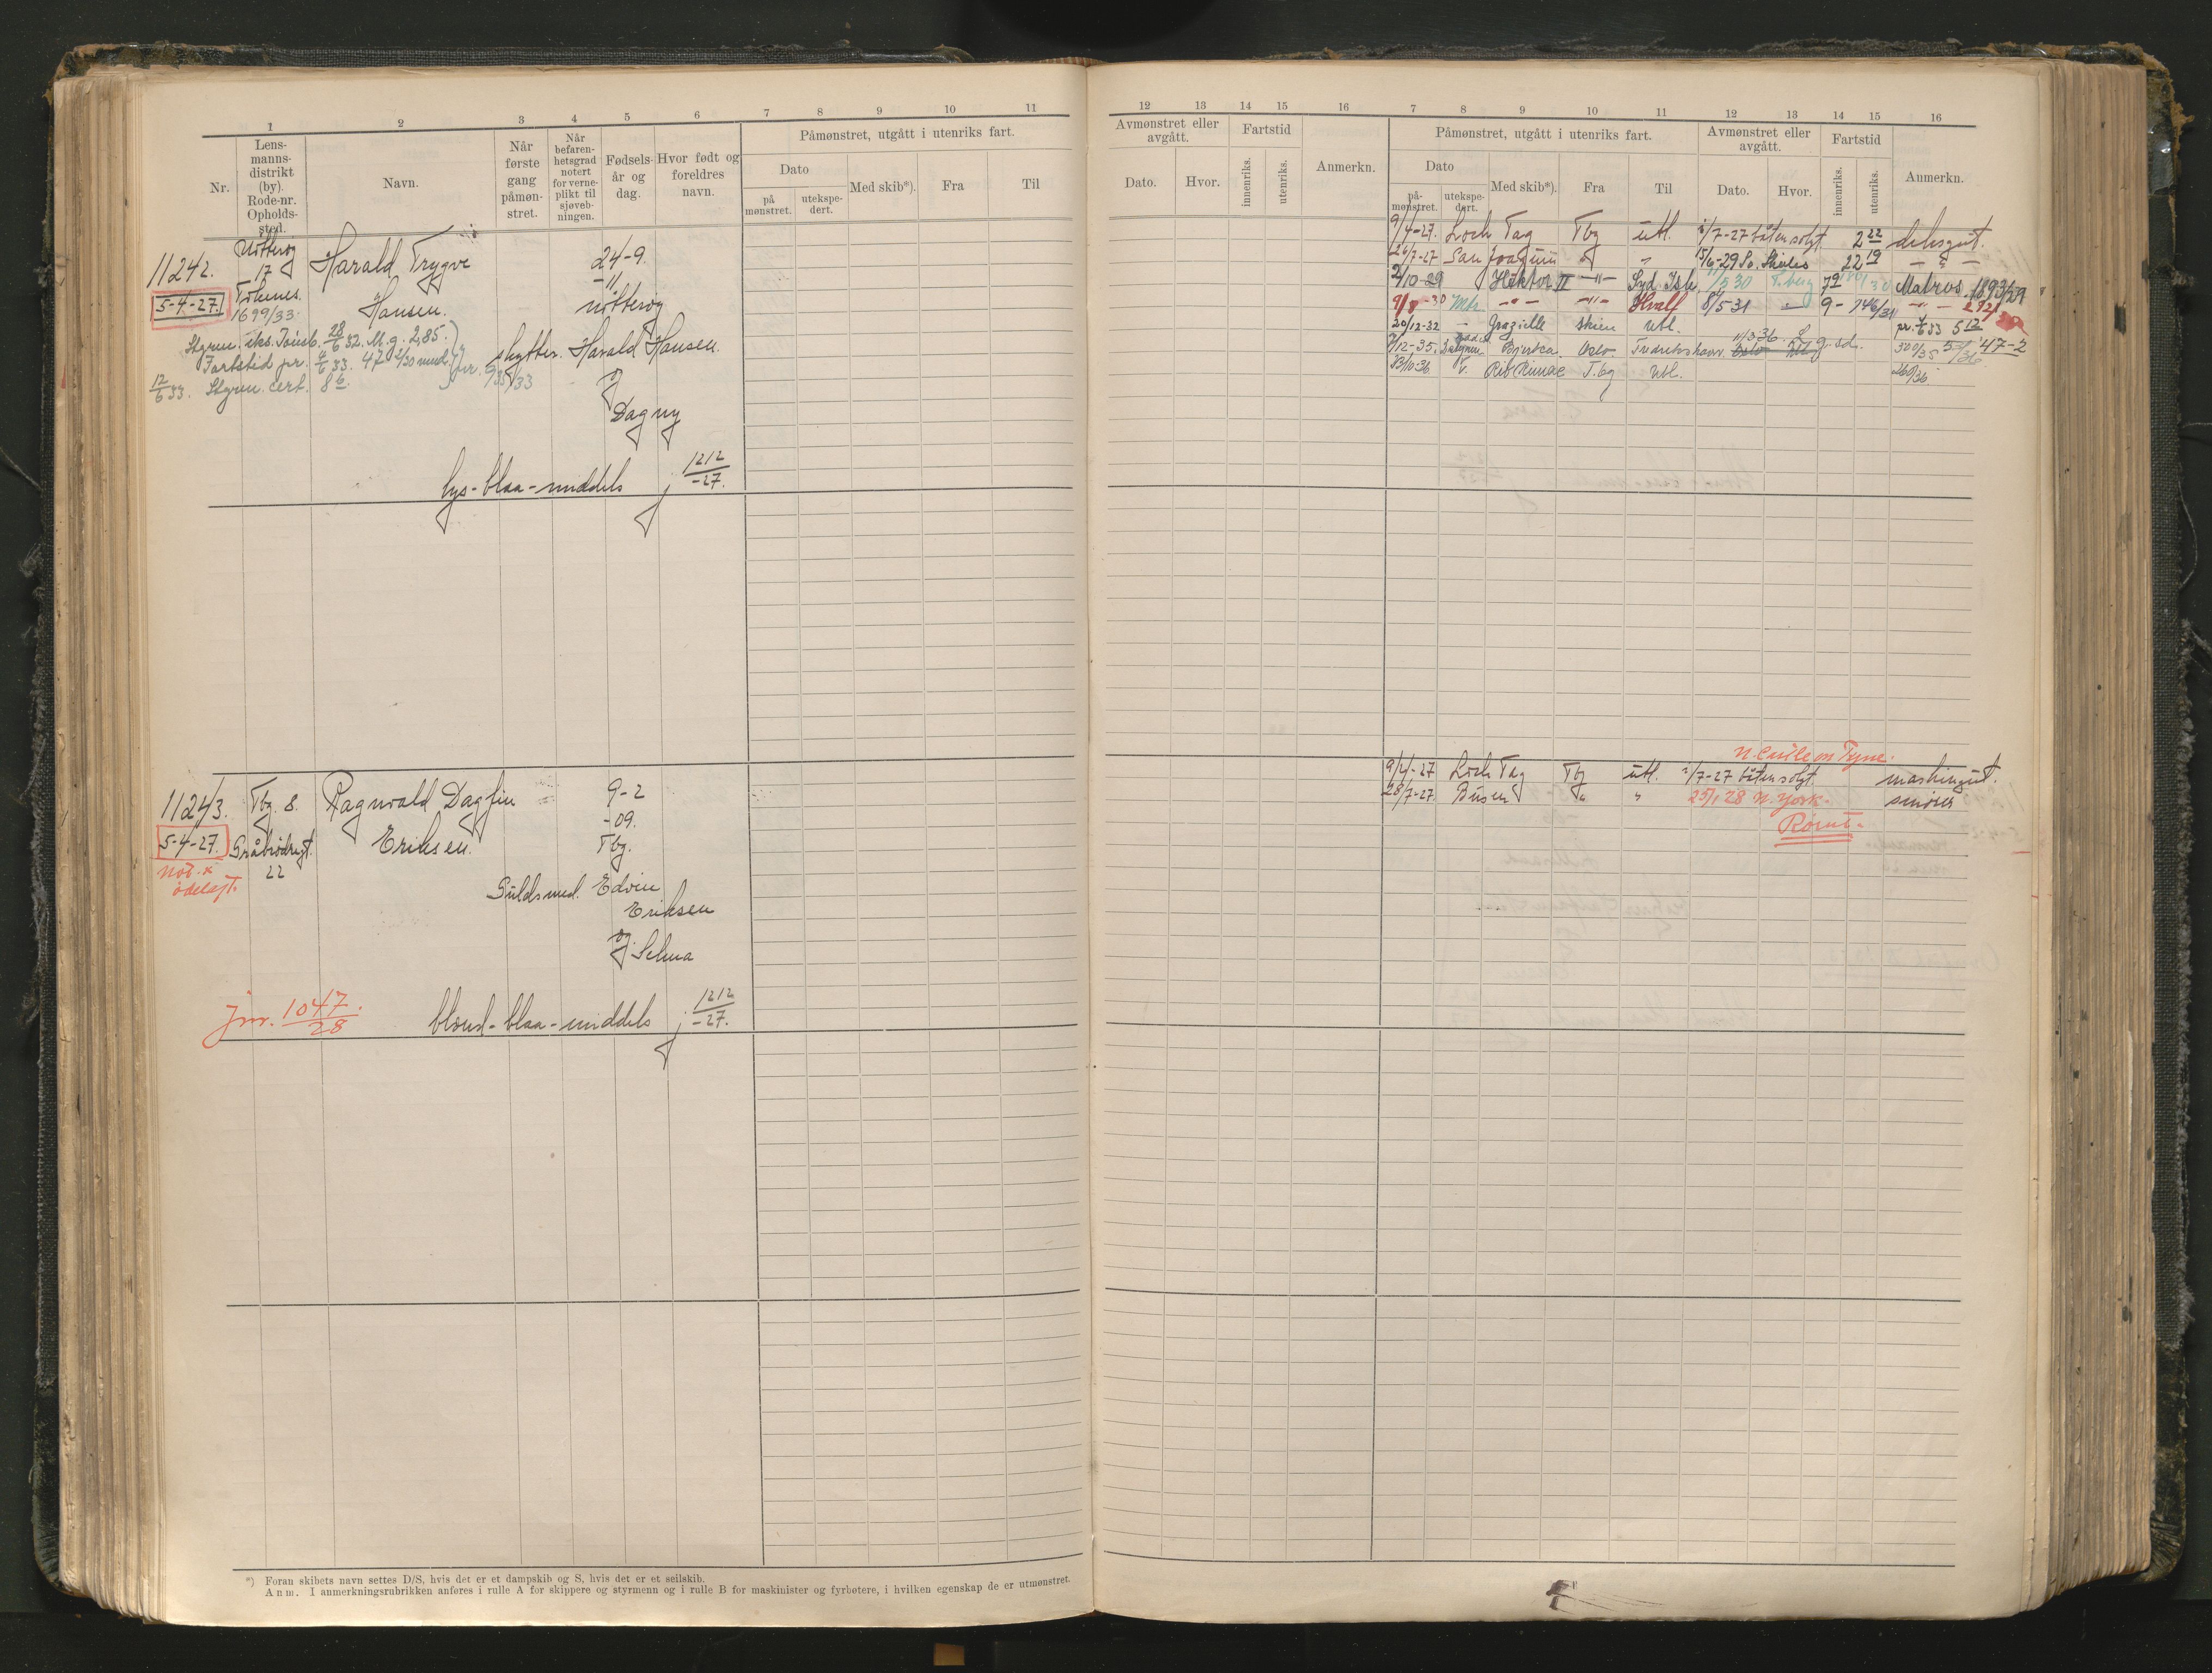 1 2 3 4 5 6 7 8 9 10 11
Nr.
Lens-
manns-
distrikt
(by).
Rode-nr.
Opholds-
sted.
Navn.
Når
første
gang
påmøn-
stret.
Når
befaren-
hetsgrad
notert
for verne-
plikt til
sjøveb-
ningen.
Fødsels-
år og
dag.
Hvor født og
foreldres
navn.
Påmønstret, utgått i utenriks fart.
Dato
på
mønstret.
utekspe-
dert.
Med skib*).
Fra
Til
11242.
Nøtterøy
17
Harald Trygve
Hansen.
24-9.
-11
Nøtterøy
5-4-27.
1699/33
Styrm. eks. Tønsb. 28/6 32. M. g. 2,85.
Fartstid pr. 4/6 33. 47 2/30 mnd.
12/6 33. Styrm. cert. 8
skytter Harald Hansen.
og
Dagny
lys-blaa-middels
j 1212/-27.
11243.
Tbg. 8.
Ragnvald Dagfin
Eriksen.
9-2
-09.
Tbg.
5-4-27.
Gråbrødregt.
22
Not.
ødelagt.
Guldsmed. Edvin
Eriksen
og Selma
jnr. 1047/28
blond-blaa-middels
j 1212/-27.
*) Foran skibets navn settes D/S, hvis det er et dampskib og S, hvis det er et seilskib.
Anm. I anmerkningsrubrikken anføres i rulle A for skippere og styrmenn og i rulle B for maskinister og fyrbøtere, i hvilken egenskap de er utmønstret.
12 13 14 15 16 7 8 9 10 11 12 13 14 15 16
Avmønstret eller
avgått.
Dato.
Hvor.
Fartstid
innenriks.
utenriks.
Anmerkn.
Påmønstret, utgått i utenriks fart.
Dato
på-
mønstret.
utekspe-
dert.
Med skib*).
Fra
Til
Avmønstret eller
avgått.
Dato.
Hvor.
Fartstid
innenriks.
utenriks.
Anmerkn.
9/4-27. Loch Tag Tbg utl. /7-27 båten solgt. 2 22 deksgut.
26/7-27 San Joaquin " " 15/6-29 So. Shields 22 19 - " -
2/10-29 Hektor II -"- Syd Ish. 11/5 30 T.berg 7 9 Matros 1893/29
9/8-30 -"- -"- Hvalf 8/5 31 - 9- 746/31 -"-
20/12-32 - Graziella Skien Utl. pr. 4/6 33 5 12
7/12-35. Bjerka Oslo. Fredrikshavn. 11/3 36. 300/35 47-2
13/10-36. Tbg Utl. 260/36
N. Castle on Tyne.
9/4-27 Loch Tag Tbg utl. /7-27 båten solgt. maskingut.
28/7-27. Busen " " 25/1 28 N. York. smører
Rømt.